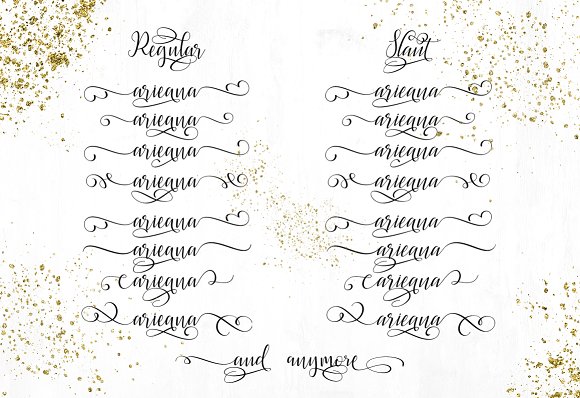 Regular Slant
arieana arieana
arieana arieana
arieana arieana
arieana arieana
arieana arieana
arieana arieana
arieana arieana
arieana arieana
and anymore